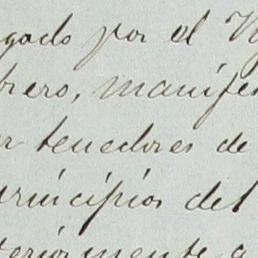 gado por el
brero, manifes
tenedores de
principios del
teriormente a